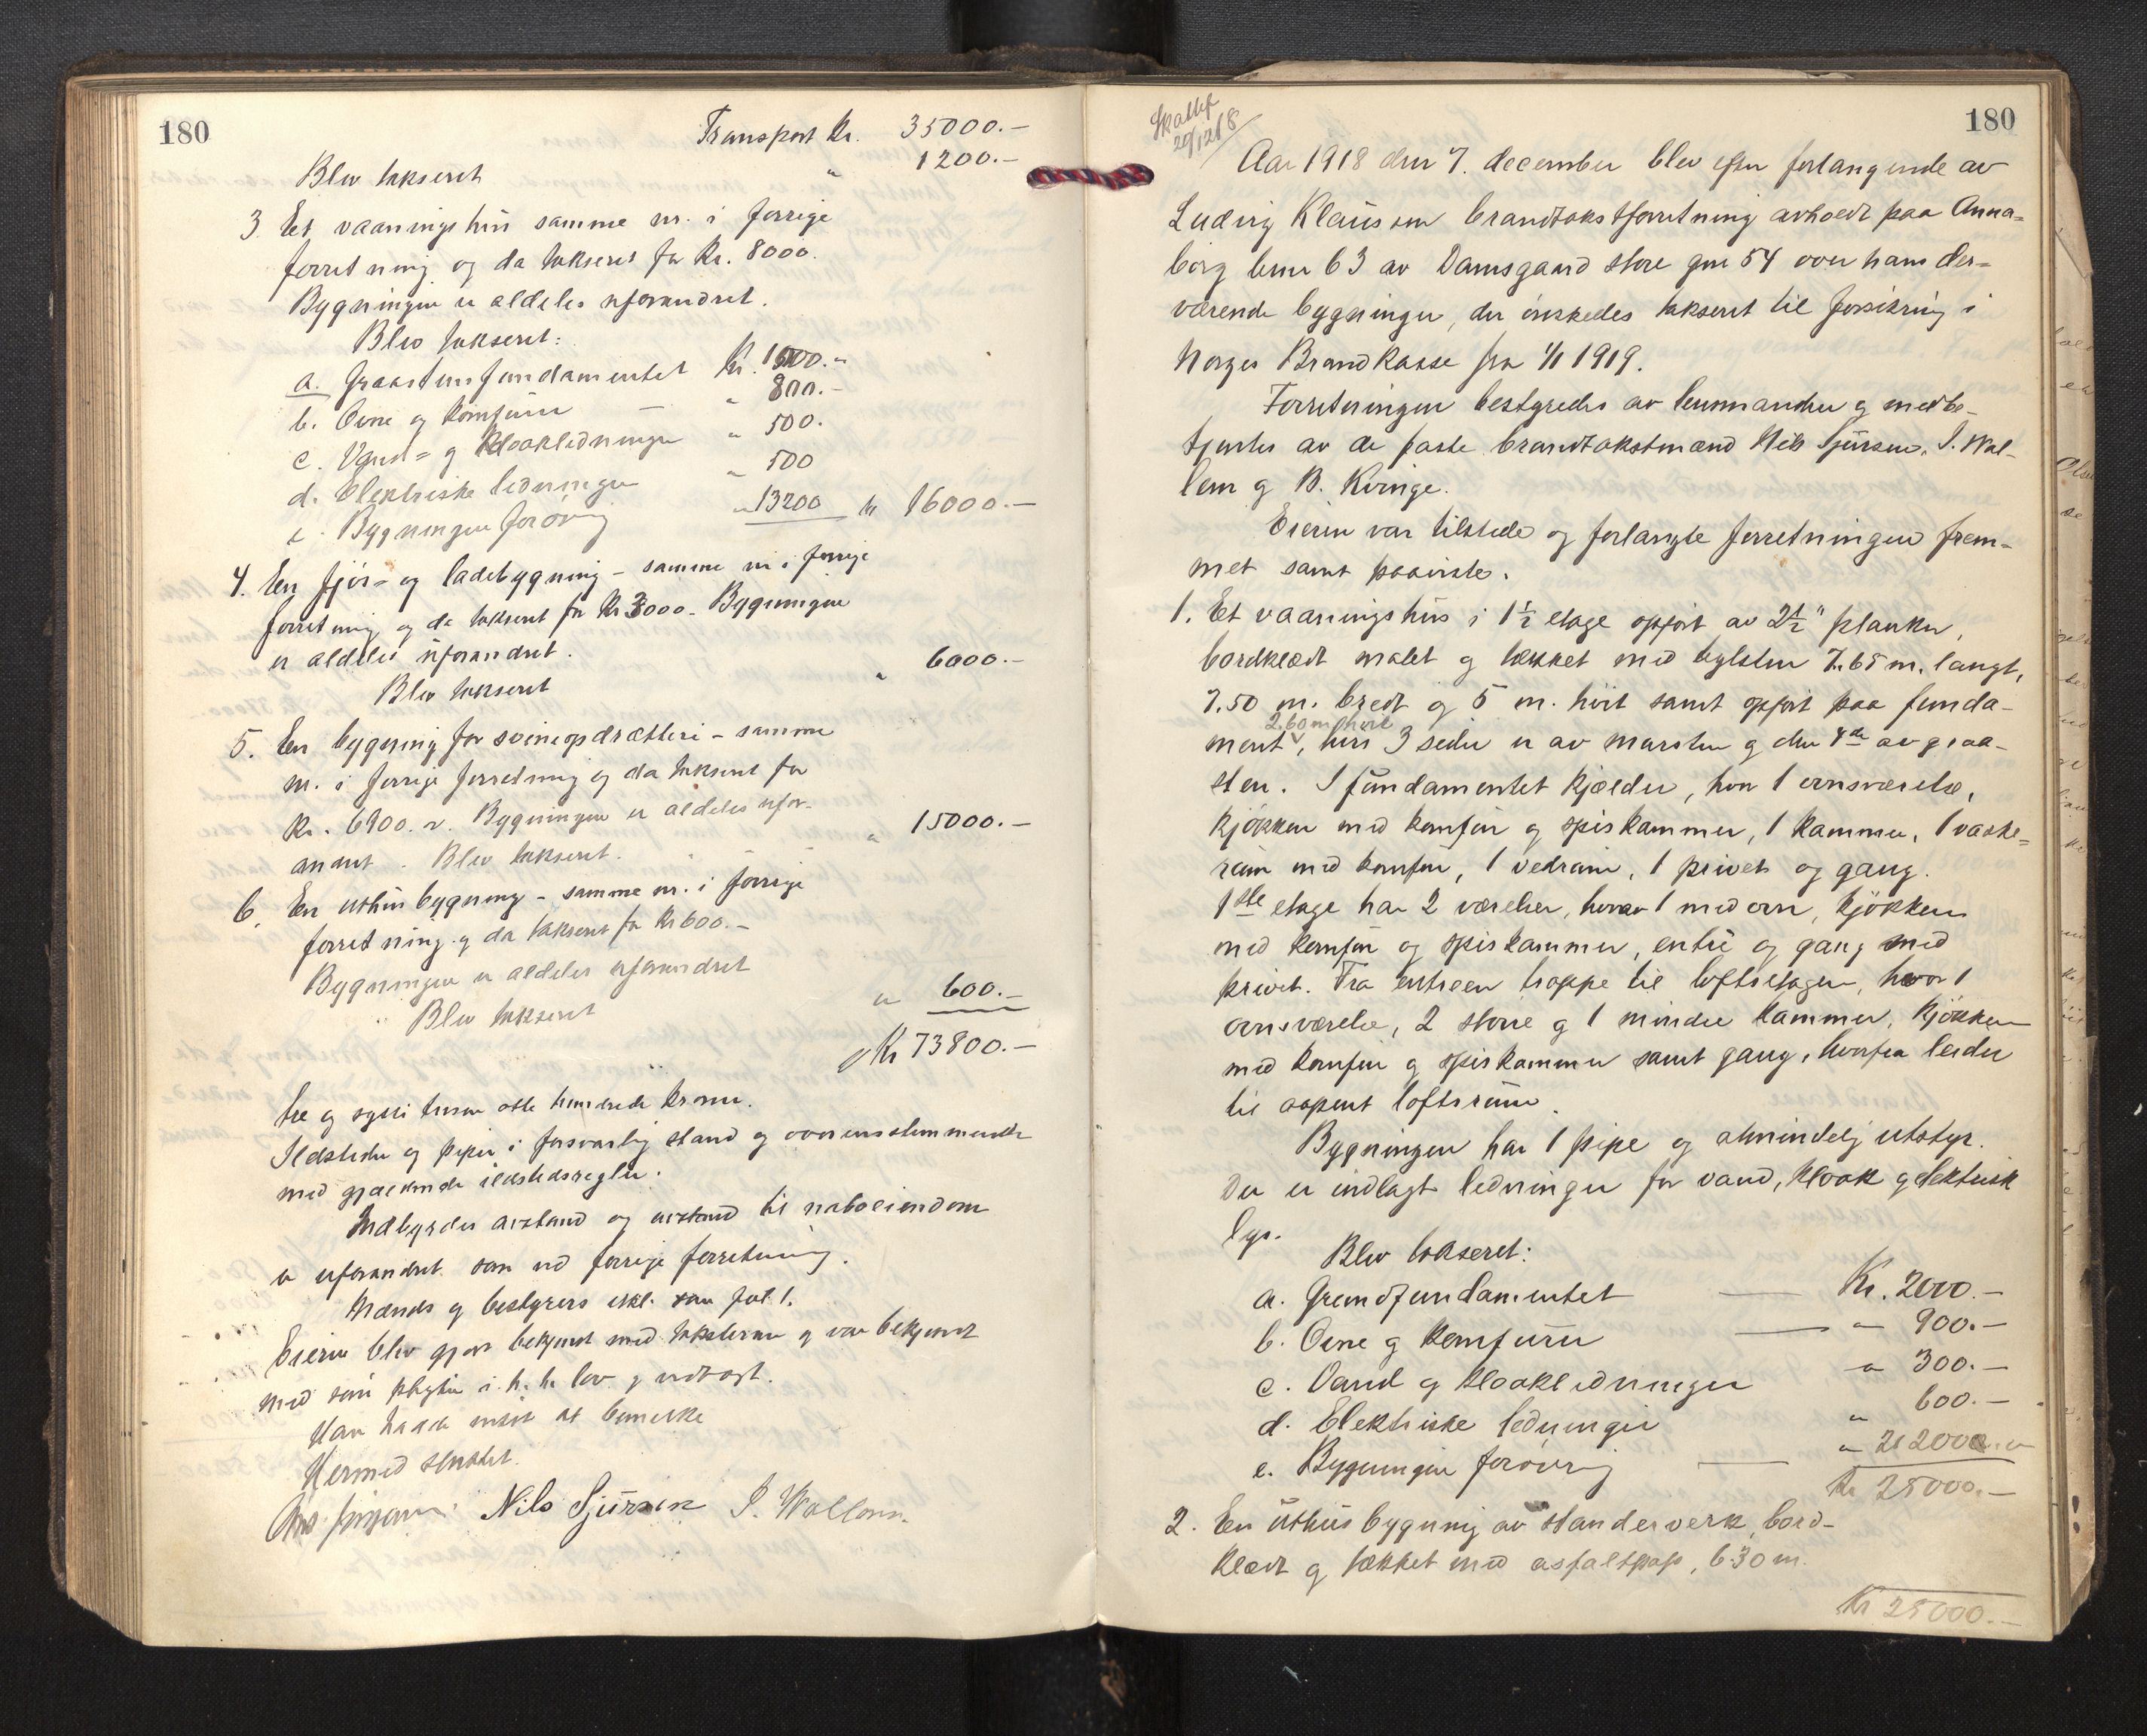 180
Transport Kr. 35000.-
Blev takseret " 1200.-
3. Et vaaningshus samme nr. i forrige
forretning og da takseret for Kr. 8000.
Bygningen er aldeles uforandret.
Blev takseret:
a. Graastensfundamentet Kr. 1000.-
b. Ovne og komfurer " 800.-
c. Vand- og kloakledninger " 500.
d. Elektriske ledninger " 500
e. Bygningen forøvrig " 13200 kr 16000.-
4. En fjös- og ladebygning - samme nr i forrige
forretning og da takseret for Kr 3000. Bygningen
er aldeles uforandret.
Blev takseret " 6000.-
5. En bygning for svineopdrætteri - samme
nr. i forrige forretning og da takseret for
Kr. 6900. Bygningen er aldeles ufor-
andret. Blev takseret. " 15000.-
6. En uthusbygning - samme nr. i forrige
forretning og da takseret for Kr 600.-
Bygningen er aldeles uforandret
Blev takseret " 600.-
Kr 73800.-
tre og sytti tusen otte hundrede kroner.
Ildsteder og piper i forsvarlig stand og overensstemmende
med gjældende ildstedsregler.
Indbyrdes avstand og avstand til naboeiendom
er uforandret som ved forrige forretning.
Mænds og bestyrers erkl. som fol 1.
Eieren blev gjort bekjent med taksterne og var bekjendt
med sine pligter i. h. t. lov og vedtægt.
Han hadde intet at bemerke
Hermed sluttet.
Nils Sjursen I. Wallem.
180
20/12 18
Aar 1918 den 7. december blev efter forlangende av
Ludvig Klausen brandtakstforretning avholdt paa Anna-
borg bnr 63 av Damsgaard store gnr 54 over hans der-
værende bygninger, der ønskedes takseret til forsikring i
Norges Brandkasse fra 1/1 1919.
Forretningen bestyredes av lensmanden og medbe-
tjentes av de faste brandtakstmænd Nils Sjursen, I. Wal-
lem og B. Kvinge.
Eieren var tilstede og forlangte forretningen frem-
met samt paaviste.
1. Et vaaningshus i 1½ etage opfört av 2½" planker,
bordklædt malet og tækket med taglsten 7.65 m. langt,
7.50 m. bredt og 5 m. höit samt opfört paa funda-
2.60 m. höit
ment, hvis 3 sider er av mursten og den 4de av graa-
sten. I fundamentet kjælder, hvor 1 ovnsværelse,
kjökken med komfur og spiskammer, 1 kammer, 1 vaske-
rum med komfur, 1 vedrum, 1 privet og gang.
1ste etage har 2 værelser, hvorav 1 med ovn, kjökken
med komfur og spiskammer, entré og gang med
privet. Fra entreen trappe til loftsetagen, hvor 1
ovnsværelse, 2 större og 1 mindre kammer, kjökken
med komfur og spiskammer samt gang, hvorfra leider
til aapent loftsrum.
Bygningen har 1 pipe og almindelig utstyr.
Der er indlagt ledninger for vand, kloak og elektrisk
lys.
Blev takseret:
a. Grundfundamentet Kr. 2000.-
b. Ovne og komfurer " 900.-
c. Vand og kloakledninger " 300.-
d. Elektriske ledninger " 600.-
e. Bygningen forøvrig " 21200.-
Kr 25000.-
2. En uthusbygning av standerverk, bord-
klædt og tækket med asfaltpap, 6.30 m.
Kr 25000.-